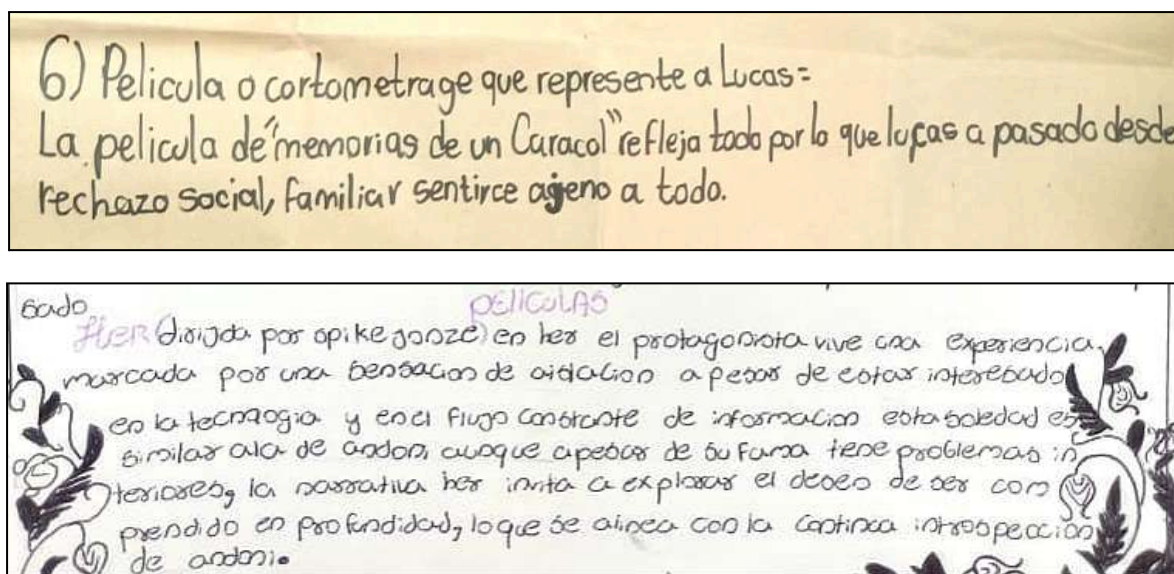 6) Pelicula o cortometrage que represente a Lucas=
La pelicula de "memorias de un Caracol" refleja todo por lo que lucas a pasado desde
rechazo social, familiar sentirce ageno a todo.
sado
PELICULAS
HER (dirigda por spike jonze) en her el protagonista vive una experiencia
marcada por una sensacion de aislacion a pesar de estar interesado
en la tecnologia y en el flujo constante de informacion esta soledad es
similar ala de andoni, aunque apesar de su fama tiene problemas in
teriores, la narrativa her invita a explorar el deseo de ser com
prendido en profundidad, lo que se alinea con la continua introspeccion
de andoni.